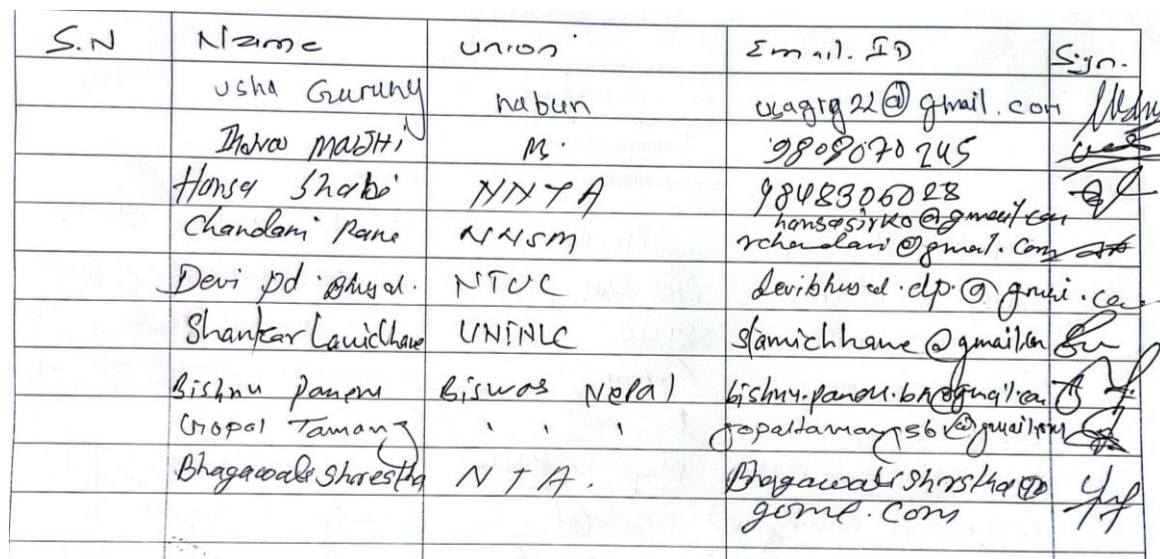 S.N Name Union Email. ID Sign.
Usha Gurung nabun usagrg22@gmail.com
MAJHI M. 9808070245
Hansa Shahi NNTA 9848306028
hansasirko@gmail.com
Chandani Rana NNSM rchandani@gmail.com
Devi pd Bhusal. NTUC devibhusal.dp@gmai.com
Shankar Lamichhane UNTNLC slamichhane@gmail.com
Bishnu Paneru Biswas Nepal bishnu.paneru.bn@gmail.com
Gopal Tamang " " " gopaltamang561@gmail.com
Bhagawati Shrestha NTA. Bhagawatishrstha@
gome.com